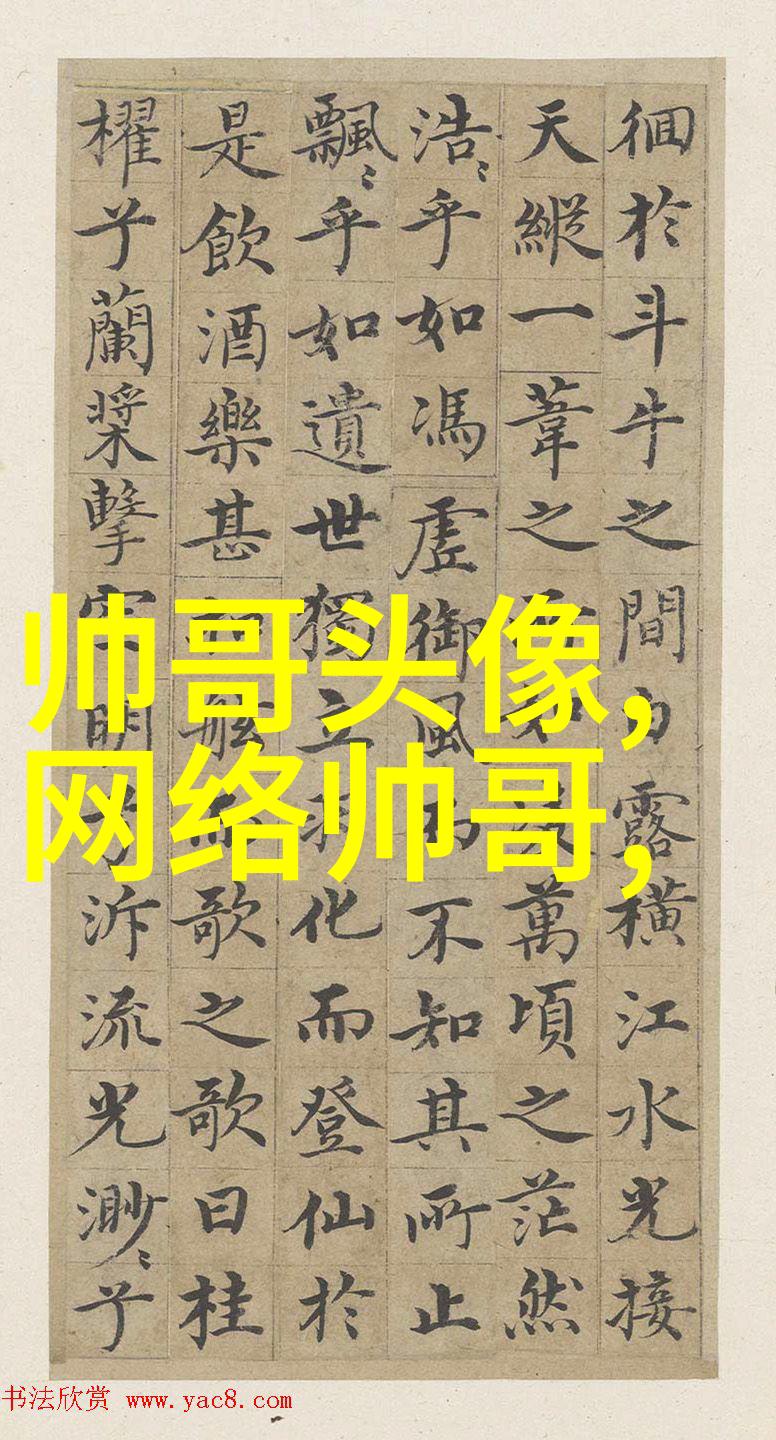 徊於斗牛之間白露橫江水光接
天縱一葦之所如凌萬頃之茫然
浩〻乎如馮虛御風而不知其所止
飄〻乎如遺世獨立羽化而登仙於
是飲酒樂甚扣舷而歌之歌曰桂
櫂兮蘭槳擊空明兮泝流光渺〻兮
帅哥头像,
网络帅哥,
书法欣赏 www.yac8.com